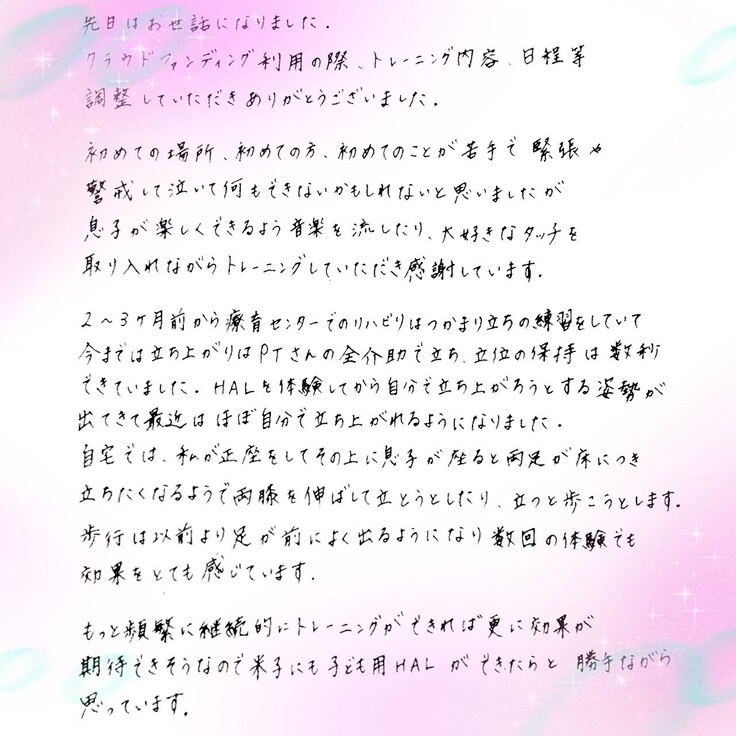 先日はお世話になりました.
クラウドファンディング利用の際、トレーニング内容、日程等
調整していただきありがとうございました.
初めての場所、初めての方、初めてのことが苦手で緊張や
警戒して泣いて何もできないかもしれないと思いましたが
息子が楽しくできるよう音楽を流したり、大好きなタッチを
取り入れながらトレーニングしていただき感謝しています.
2～3ケ月前から療育センターでのリハビリはつかまり立ちの練習をしていて
今までは立ち上がりはPTさんの全介助で立ち、立位の保持は数秒
できていました. HALを体験してから自分で立ち上がろうとする姿勢が
出てきて最近はほぼ自分で立ち上がれるようになりました.
自宅では、私が正座をしてその上に息子が座ると両足が床につき
立ちたくなるようで両膝を伸ばして立とうとしたり、立つと歩こうとします.
歩行は以前より足が前によく出るようになり数回の体験でも
効果をとても感じています.
もっと頻繁に継続的にトレーニングができれば更に効果が
期待できそうなので米子にも子ども用HALができたらと勝手ながら
思っています.